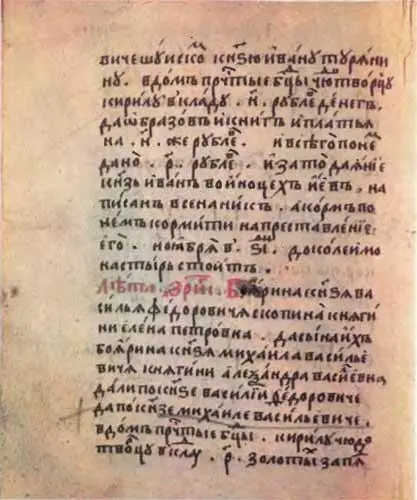 вичешуиско҃ кнѕю ивану туряни
ну. вдомъ прч҃тые бц҃ы чю҃творцу
кирилу вкладу .н҃. рублев҃ денегъ.
даѡбразовъ и книгъ и платья
на .н҃. же рублев҃. и всѣго поне҃
дано .р҃. рублев҃. и за то даяние
кнѕь иванъ
на
писанъ в сенаникъ. а кормъ по
немъ кормити на преставление
его. ноября в҃ .ѕı҃. доколе і мо
настырь стоитъ.
Лѣта, зрк҃і. боярина кнѕя ва
силья федоровичя скопина княги
ни елена петровна. да сына ихъ
боярина кнѕя михаила василье
вичя княгини алеѯандра васил҃евна
дали по кнѕе василии федоровиче
да по кнѕе михаиле васильевиче.
вдомъ прч҃тые бц҃ы. кирилу чюдо
творцу вклад҃ .р҃. золотых҃ за пя